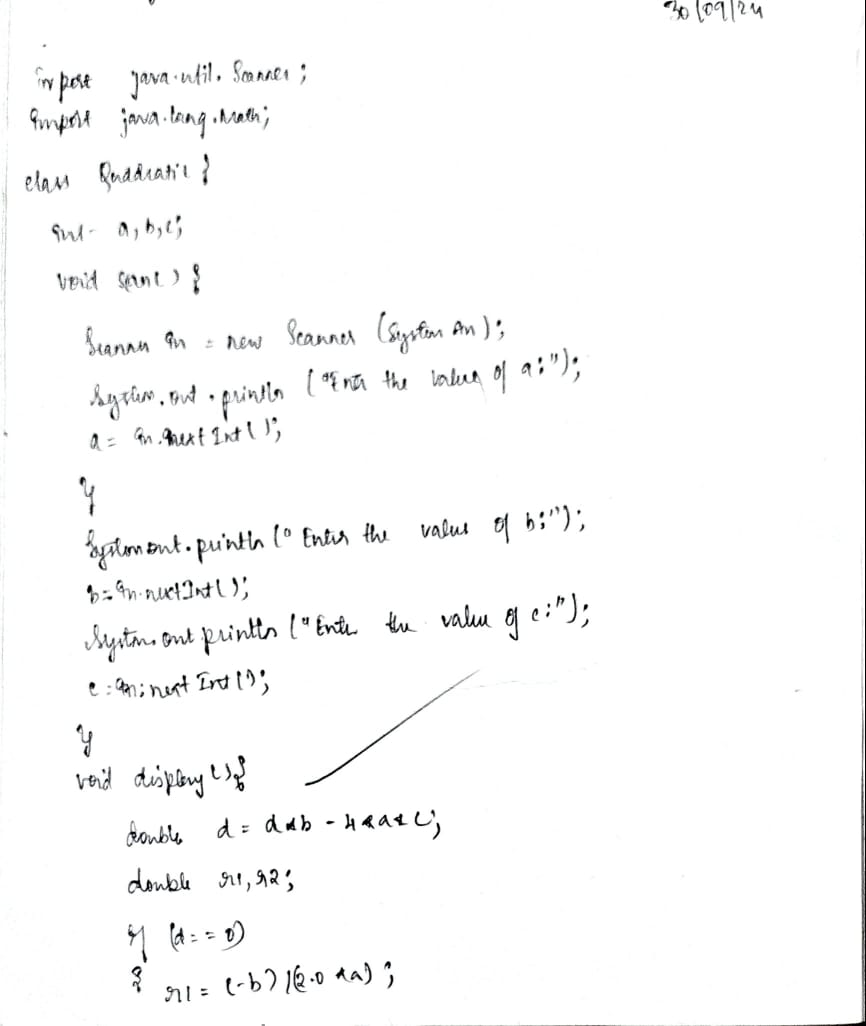 30/09/24
import java.util.Scanner;
import java.lang.Math;
class Quadratic {
int a, b, c;
void scan() {
Scanner in = new Scanner (System in);
System.out.println ("Enter the value of a:");
a = in.next Int();
}
System out.println (" Enter the value of b:");
b = in.nextInt();
System. out println ("Enter the value of c:");
c = in; next Int();
}
void display() {
double d = d*b - 4*a*c;
double r1, r2;
if (d == 0)
{ r1 = (-b) / (2.0 *a) ;